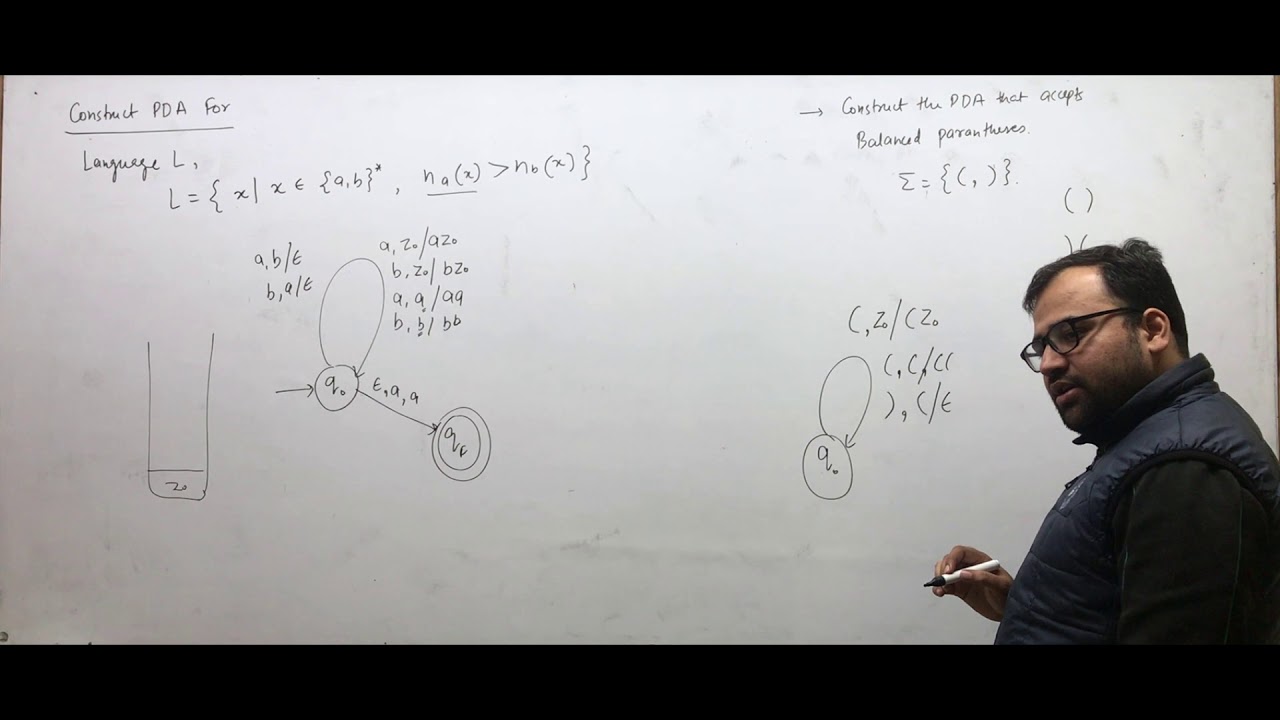 Construct PDA For
Language L,
L = { x | x ∈ {a,b}*, na(x) > nb(x) }
a, b/ε
b, a/ε
a, z0/az0
b, z0/bz0
a, a/aa
b, b/bb
q0
ε, a, a
qF
z0
→ Construct the PDA that accepts
Balanced parantheses.
Σ = { (, ) }.
( )
)(
(, z0/( z0
(, (/ ((
), (/ε
q0